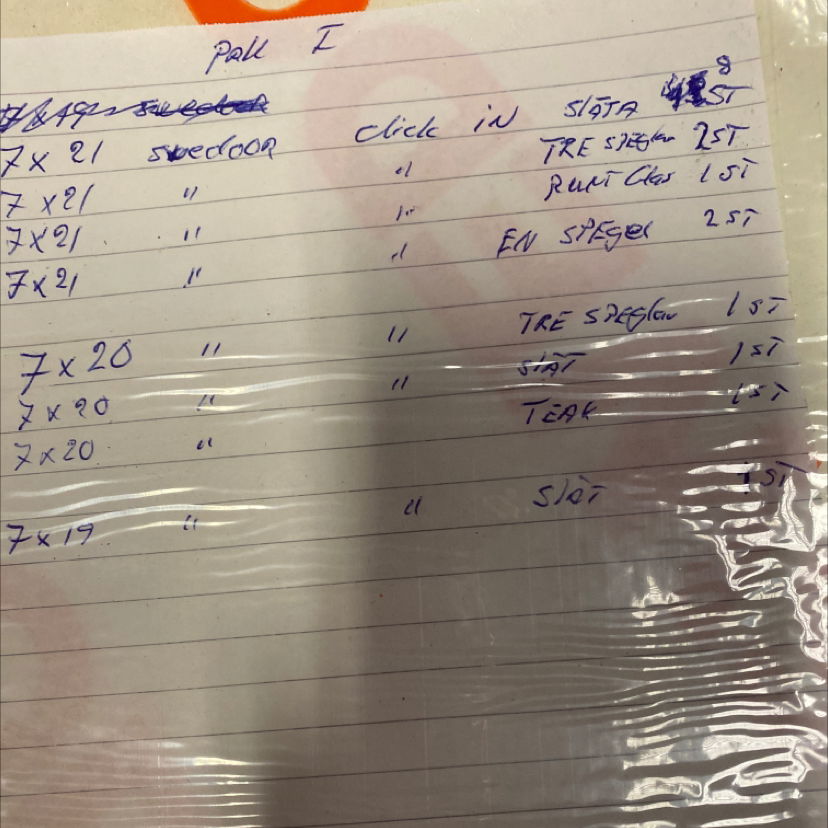 Pall I
7x21 swedoor click iN SläTA 8 ST
7x21 " " TRE SPEGlar 2ST
7x21 " " RUNT Glas 1 ST
7x21 " " EN SPEgel 2 ST
7x20 " " TRE SPEGlar 1 ST
7x20 " " SläT 1 ST
7x20 " TEAK 1 ST
7x19 " " SläT 1 ST